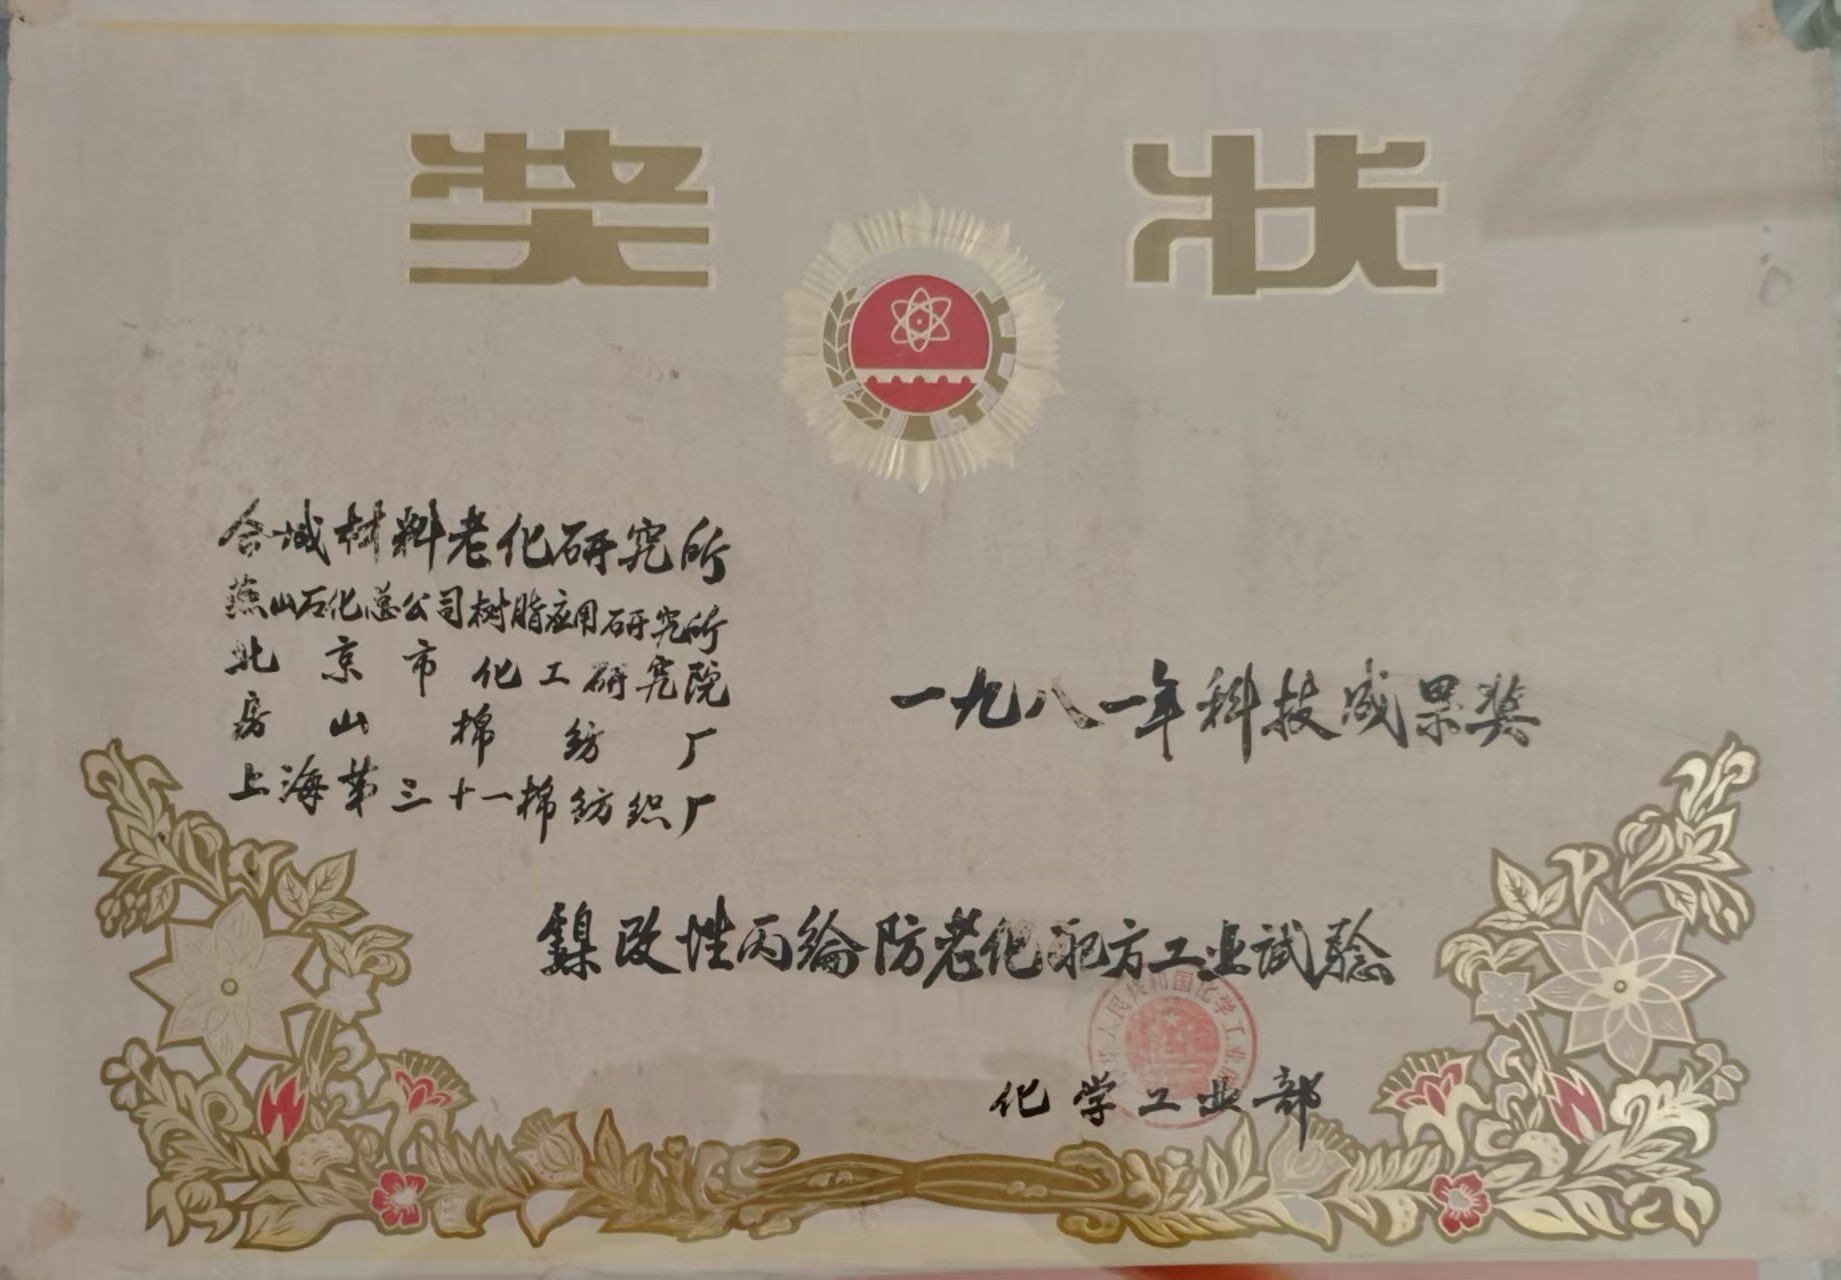 奖状
合成材料老化研究所
燕山石化总公司树脂应用研究所
北京市化工研究院
房山棉纺厂
上海第三十一棉纺织厂
一九八一年科技成果奖
镍改性丙纶防老化配方工业试验
化学工业部
人民共和国化学工业